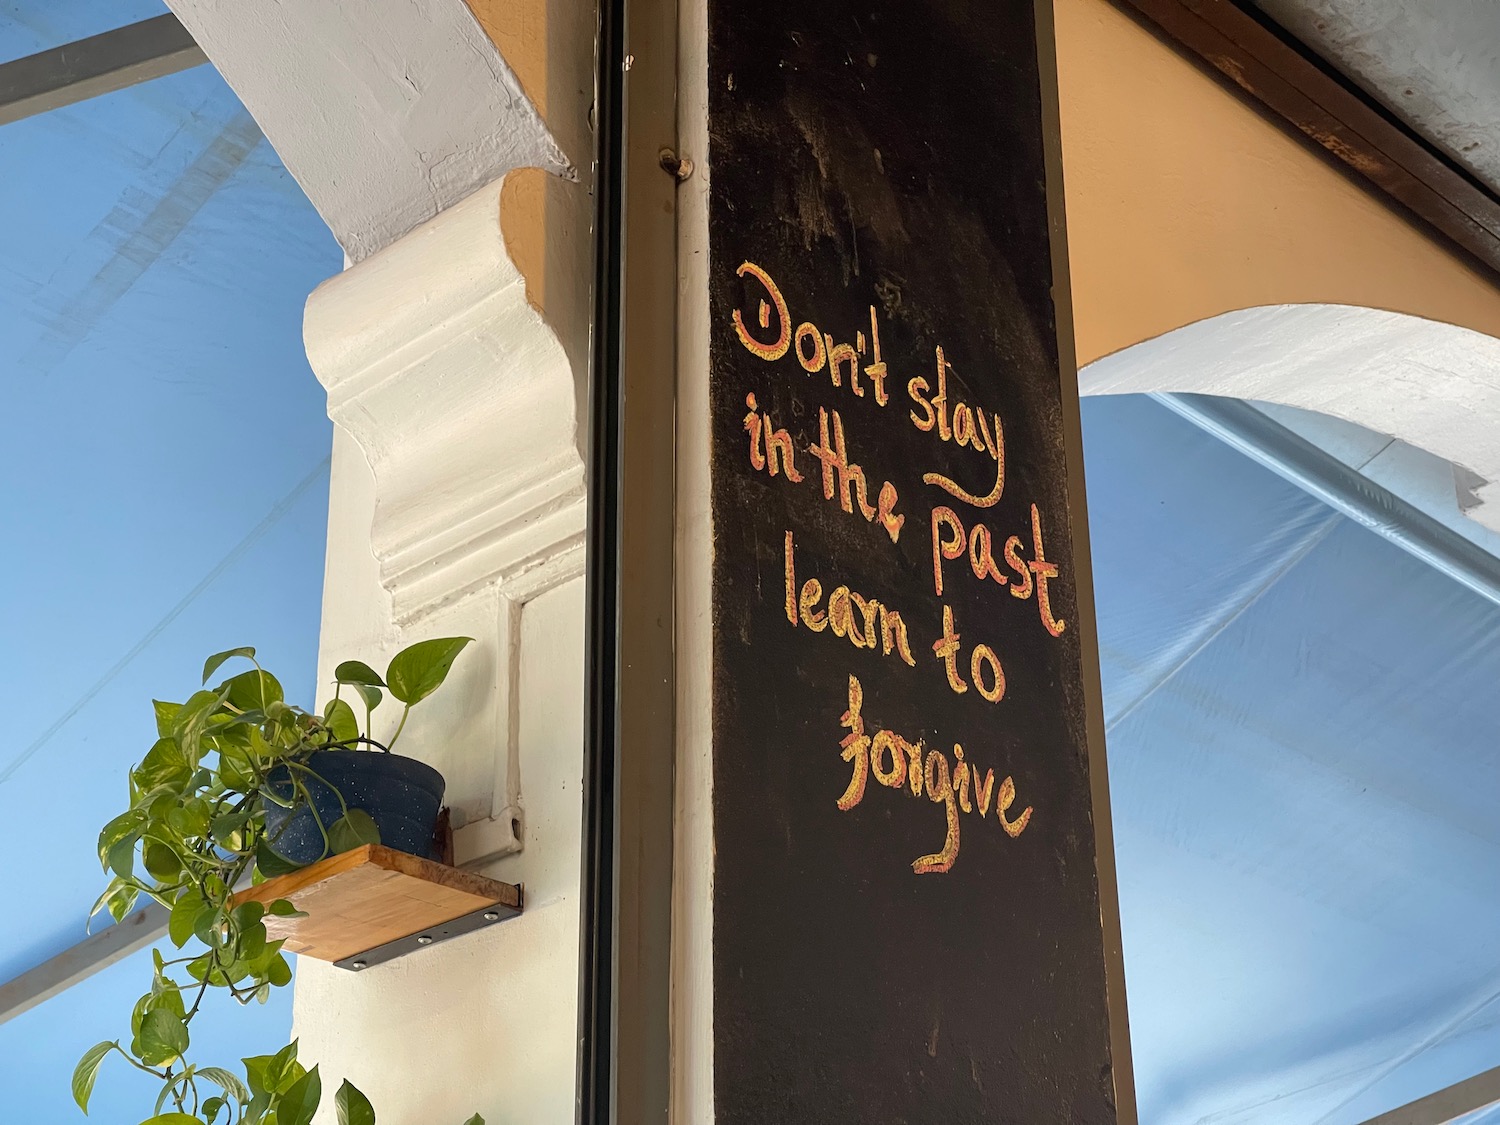 Don't stay
in the past
learn to
forgive